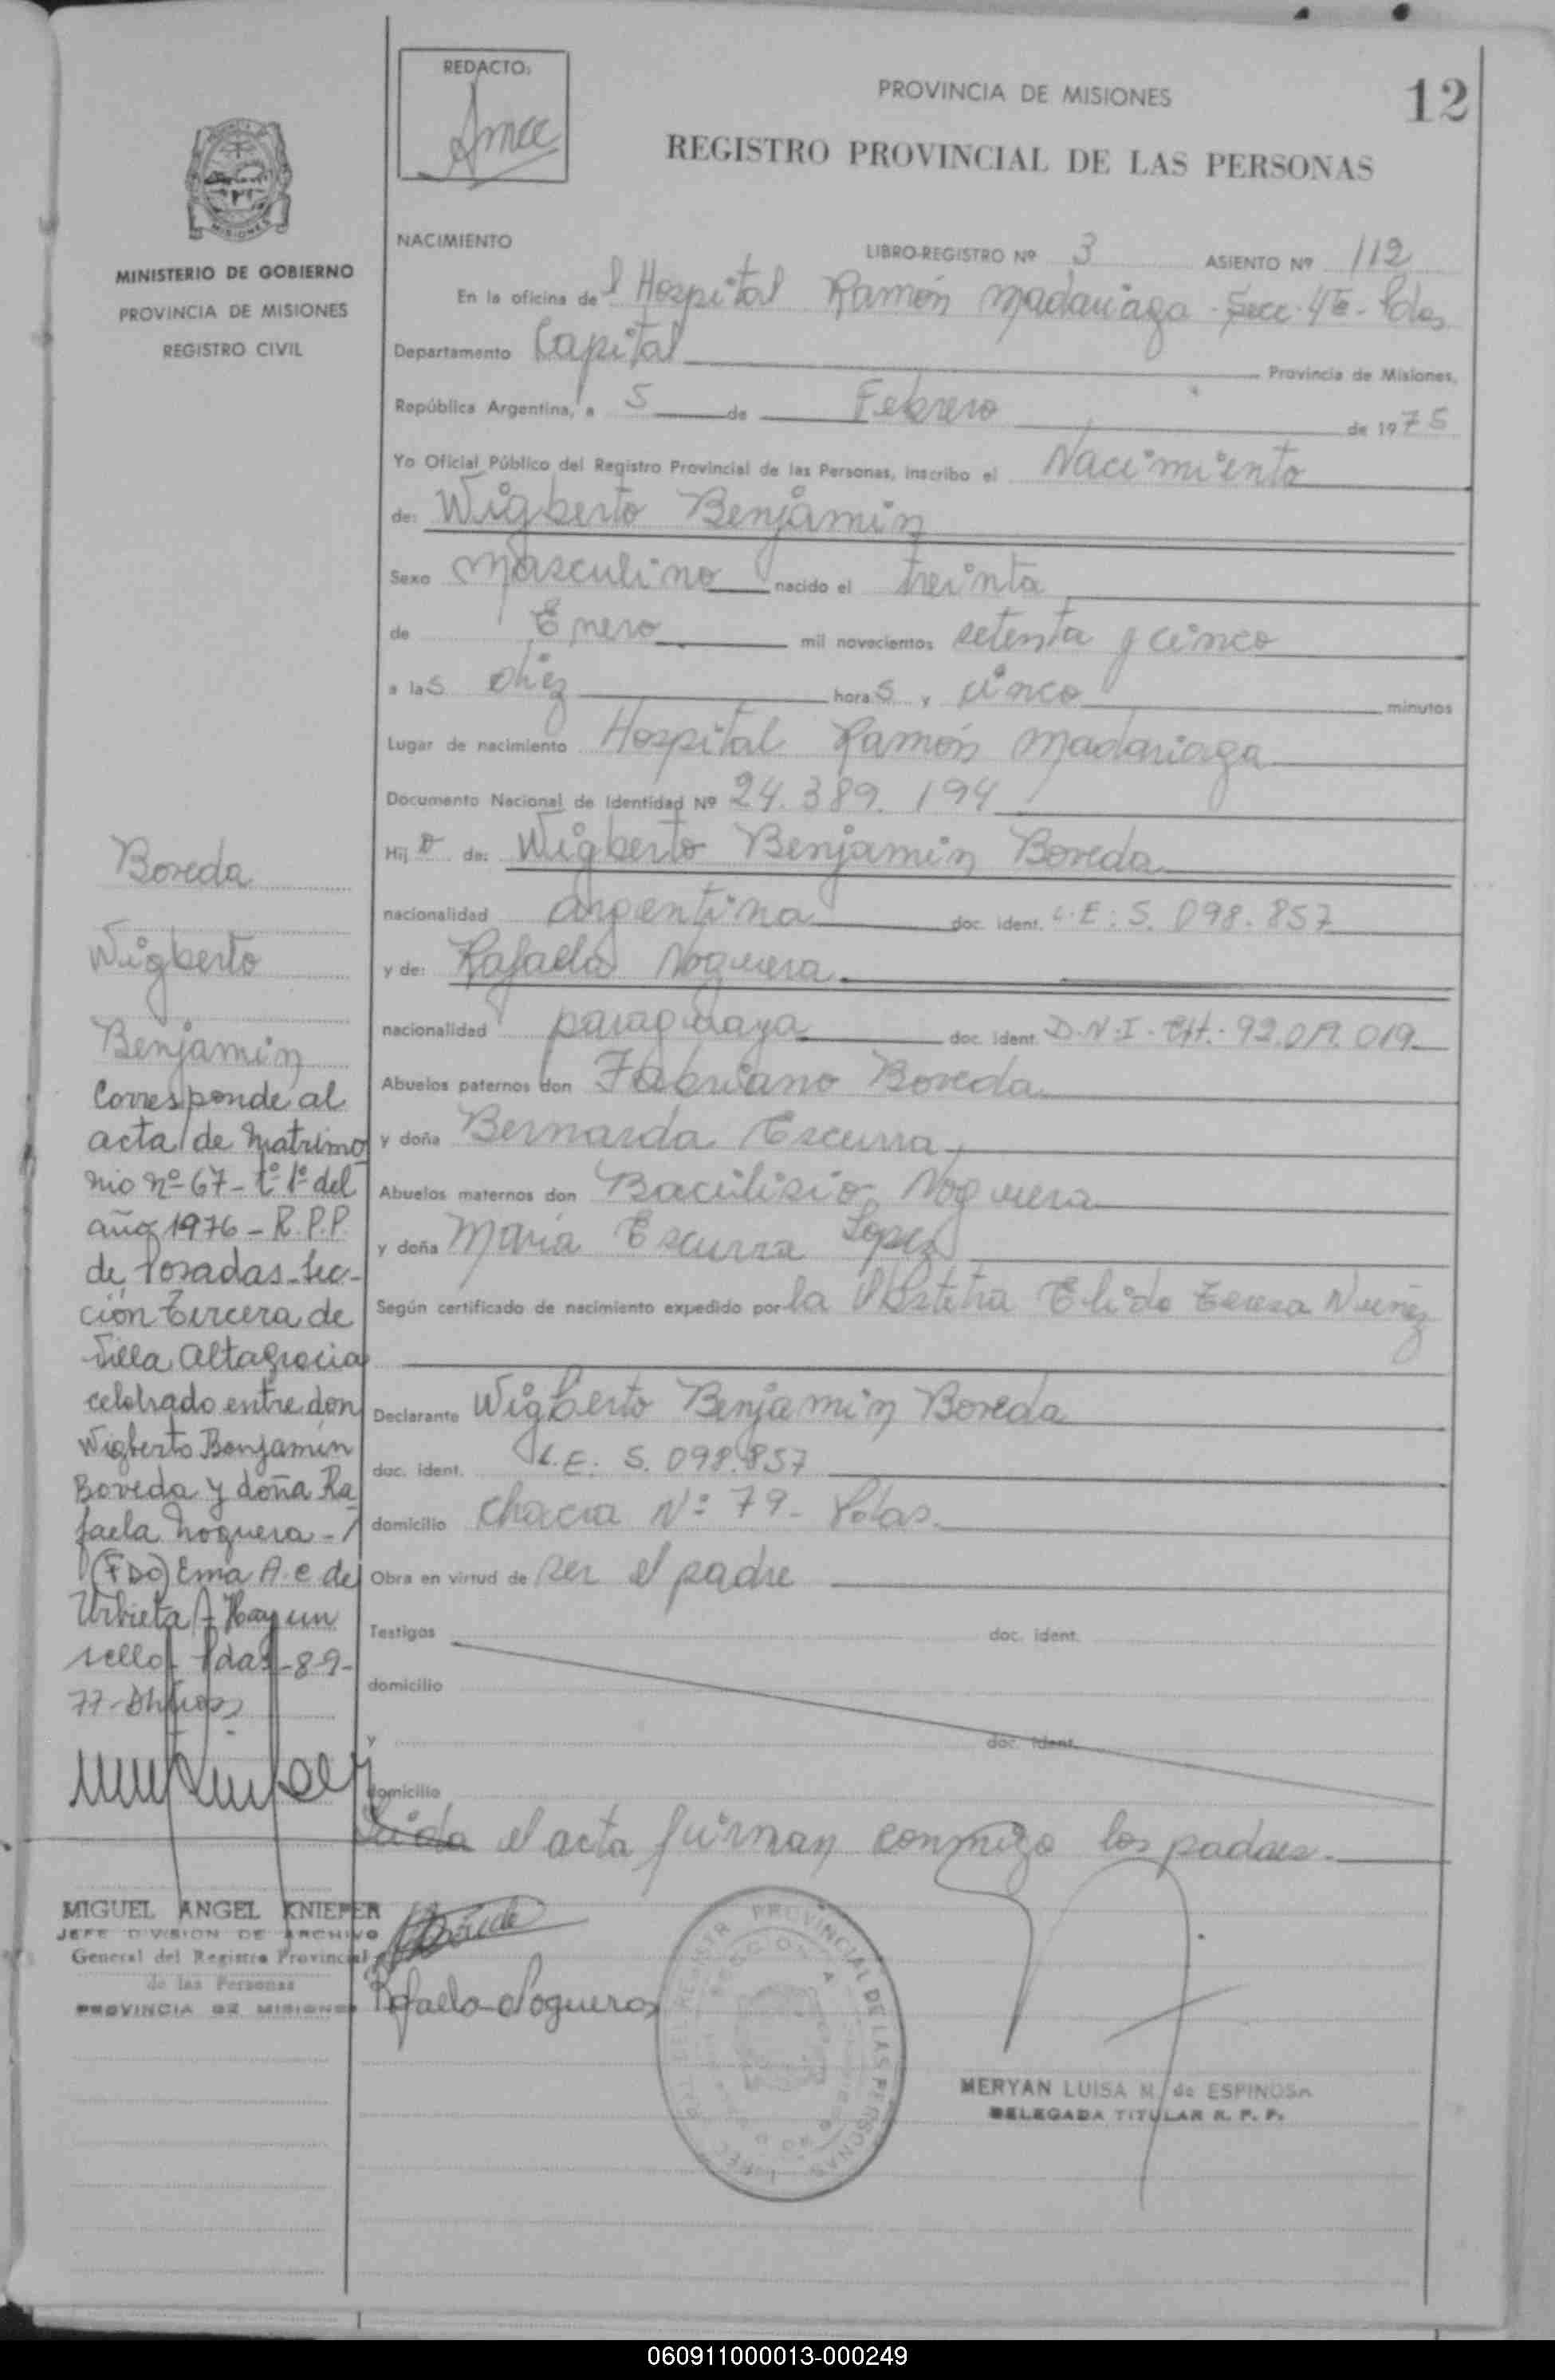 REDACTO:
PROVINCIA DE MISIONES
12
REGISTRO PROVINCIAL DE LAS PERSONAS
MISIONES
MINISTERIO DE GOBIERNO
PROVINCIA DE MISIONES
REGISTRO CIVIL
NACIMIENTO
LIBRO-REGISTRO Nº 3 ASIENTO Nº 112
En la oficina del Hospital Ramón Madariaga - Secc. 4ta - Pdas
Departamento Capital Provincia de Misiones,
República Argentina, a 5 de Febrero de 1975
Yo Oficial Público del Registro Provincial de las Personas, inscribo el Nacimiento
de: Wigberto Benjamin
Sexo Masculino nacido el treinta
de Enero mil novecientos setenta y cinco
a las diez horas y cinco minutos
Lugar de nacimiento Hospital Ramón Madariaga
Documento Nacional de Identidad Nº 24.389.194
Hijo de: Wigberto Benjamin Boveda
nacionalidad argentina doc. ident. L.E: 5.098.857
y de: Rafaela Noguera
nacionalidad paraguaya doc. ident. D.N.I. - Ext. - 92.019.019
Abuelos paternos don Fabriano Boveda
y doña Bernarda Escurra
Abuelos maternos don Bacilisio Noguera
y doña María Escurra Lopez
Según certificado de nacimiento expedido por la Obstetra Elida Teresa Nuñez
Declarante Wigberto Benjamin Boveda
doc. ident. L.E. 5.098.857
domicilio Chacra Nº 79 - Pdas.
Obra en virtud de ser el padre
Testigos doc. ident.
domicilio
y doc. ident.
domicilio
Leida el acta firman conmigo los padres.
Boveda
Wigberto
Benjamin
Corresponde al
acta de Matrimo
nio nº 67 - tº 1º del
año 1976 - R.P.P.
de Posadas - Sec-
ción tercera de
Villa Altagracia
celebrado entre don
Wigberto Benjamin
Boveda y doña Ra
faela Noguera - /
(FDO) Ema A. e de
Urbieta - Hay un
sello - Pdas - 8-9-
77 -
MIGUEL ANGEL KNIEPER
JEFE DIVISION DE ARCHIVO
General del Registro Provincial
de las Personas
PROVINCIA DE MISIONES
Rafaela Noguera
PROVINCIAL DE LAS PERSONAS
MERYAN LUISA M. de ESPINOSA
DELEGADA TITULAR R. P. P.
060911000013-000249